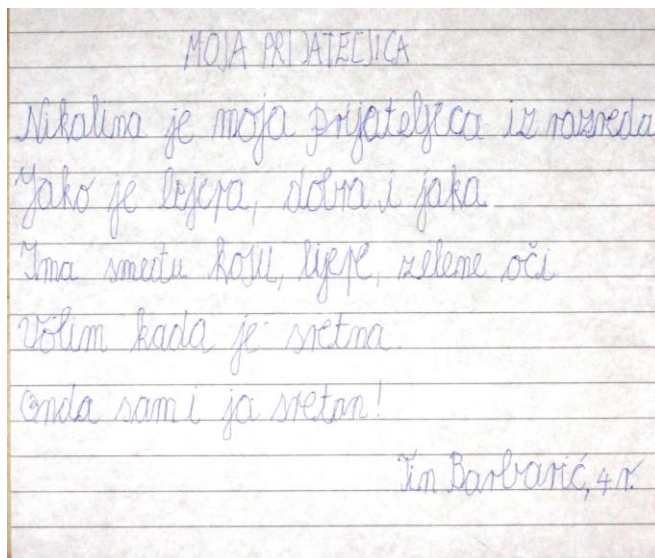 MOJA PRIJATELJICA
Nikolina je moja prijateljica iz razreda
Jako je lijepa, dobra i jaka.
Ima smeđu kosu, lijepe, zelene oči.
Volim kada je sretna.
Onda sam i ja sretan!
Tin Barbarić, 4.r.